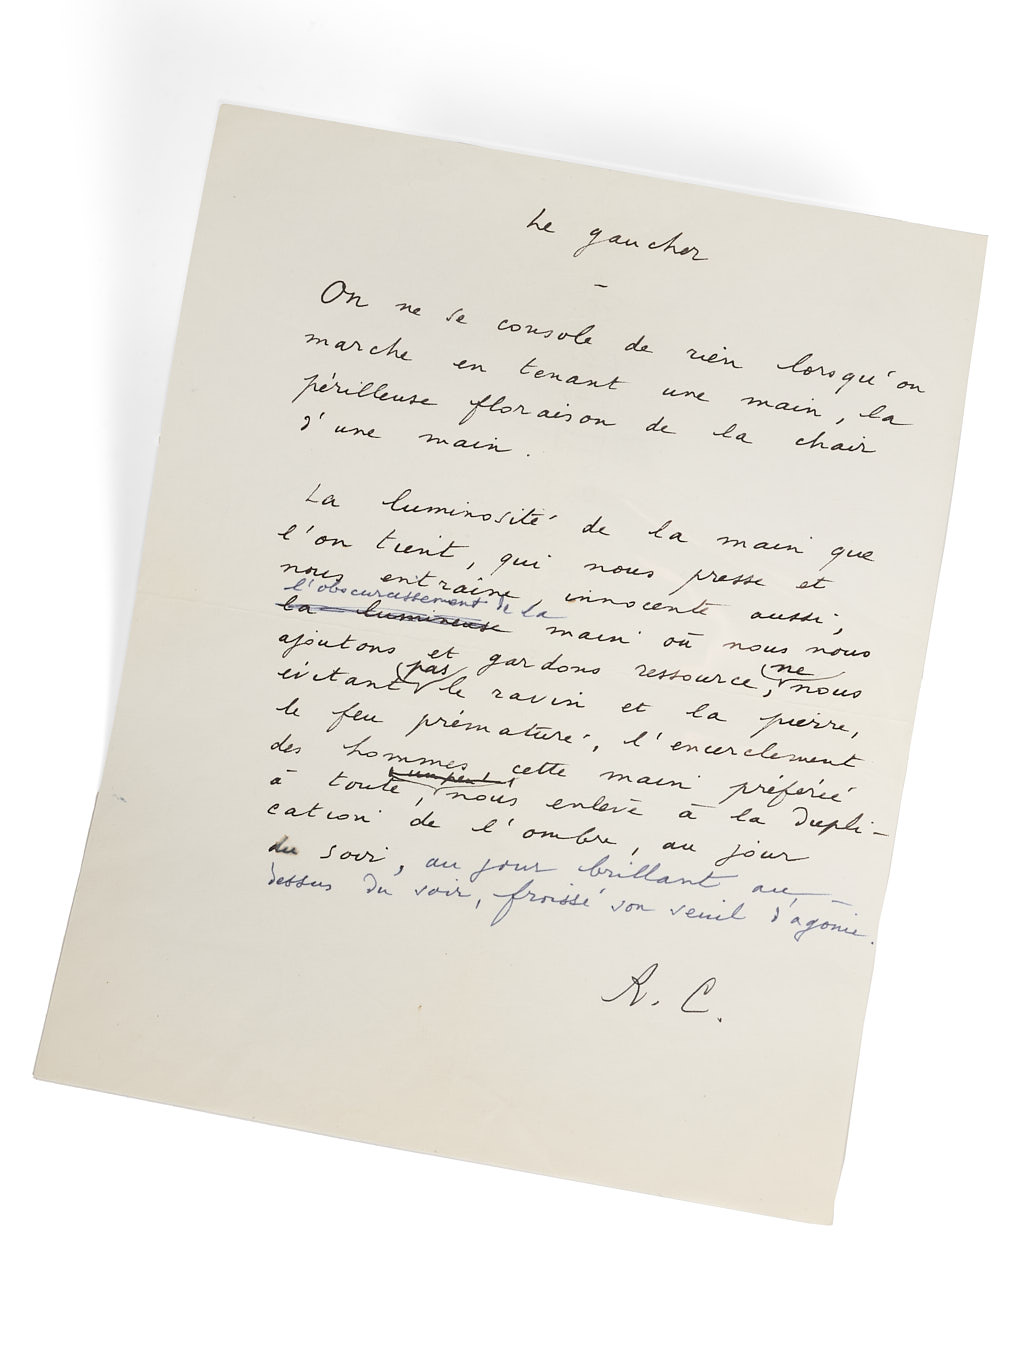 Le gaucher
On ne se console de rien lorsqu'on
marche en tenant une main, la
périlleuse floraison de la chair
d'une main.
La luminosité de la main que
l'on tient, qui nous presse et
nous entraîne, innocente aussi,
l'obscurcissement de la
la lumineuse main où nous nous
ajoutons et gardons ressource, ne nous
évitant pas le ravin et la pierre,
le feu prématuré, l'encerclement
des hommes, cette main préférée
à toute, nous enlève à la dupli-
cation de l'ombre, au jour
du soir, au jour brillant au-
dessus du soir, froissé son seuil d'agonie.
R. C.